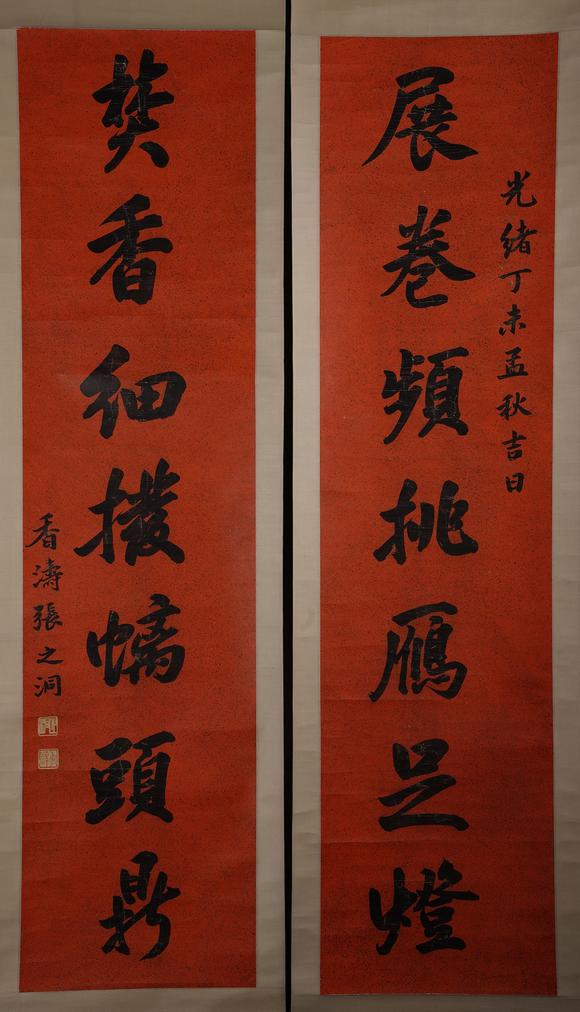 光緒丁未孟秋吉日
展卷頻挑鴈足燈
焚香細撥螭頭鼎
香濤張之洞